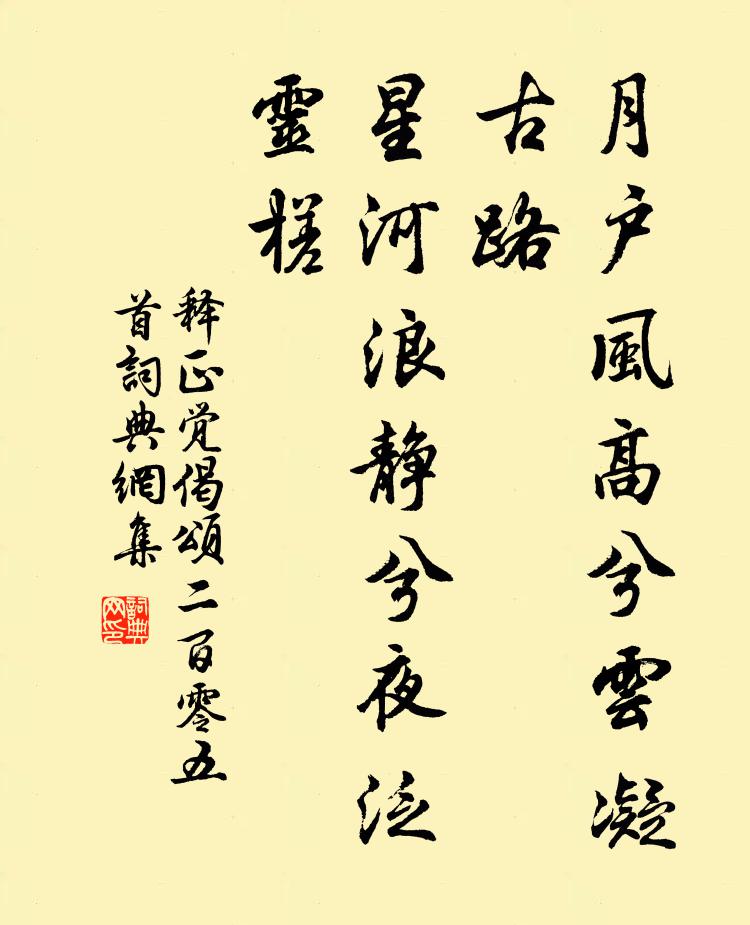 月户風高兮雲凝
古路
星河浪静兮夜泛
靈槎
释正觉偈頌二百零五
首詞典網集
詞典
网印